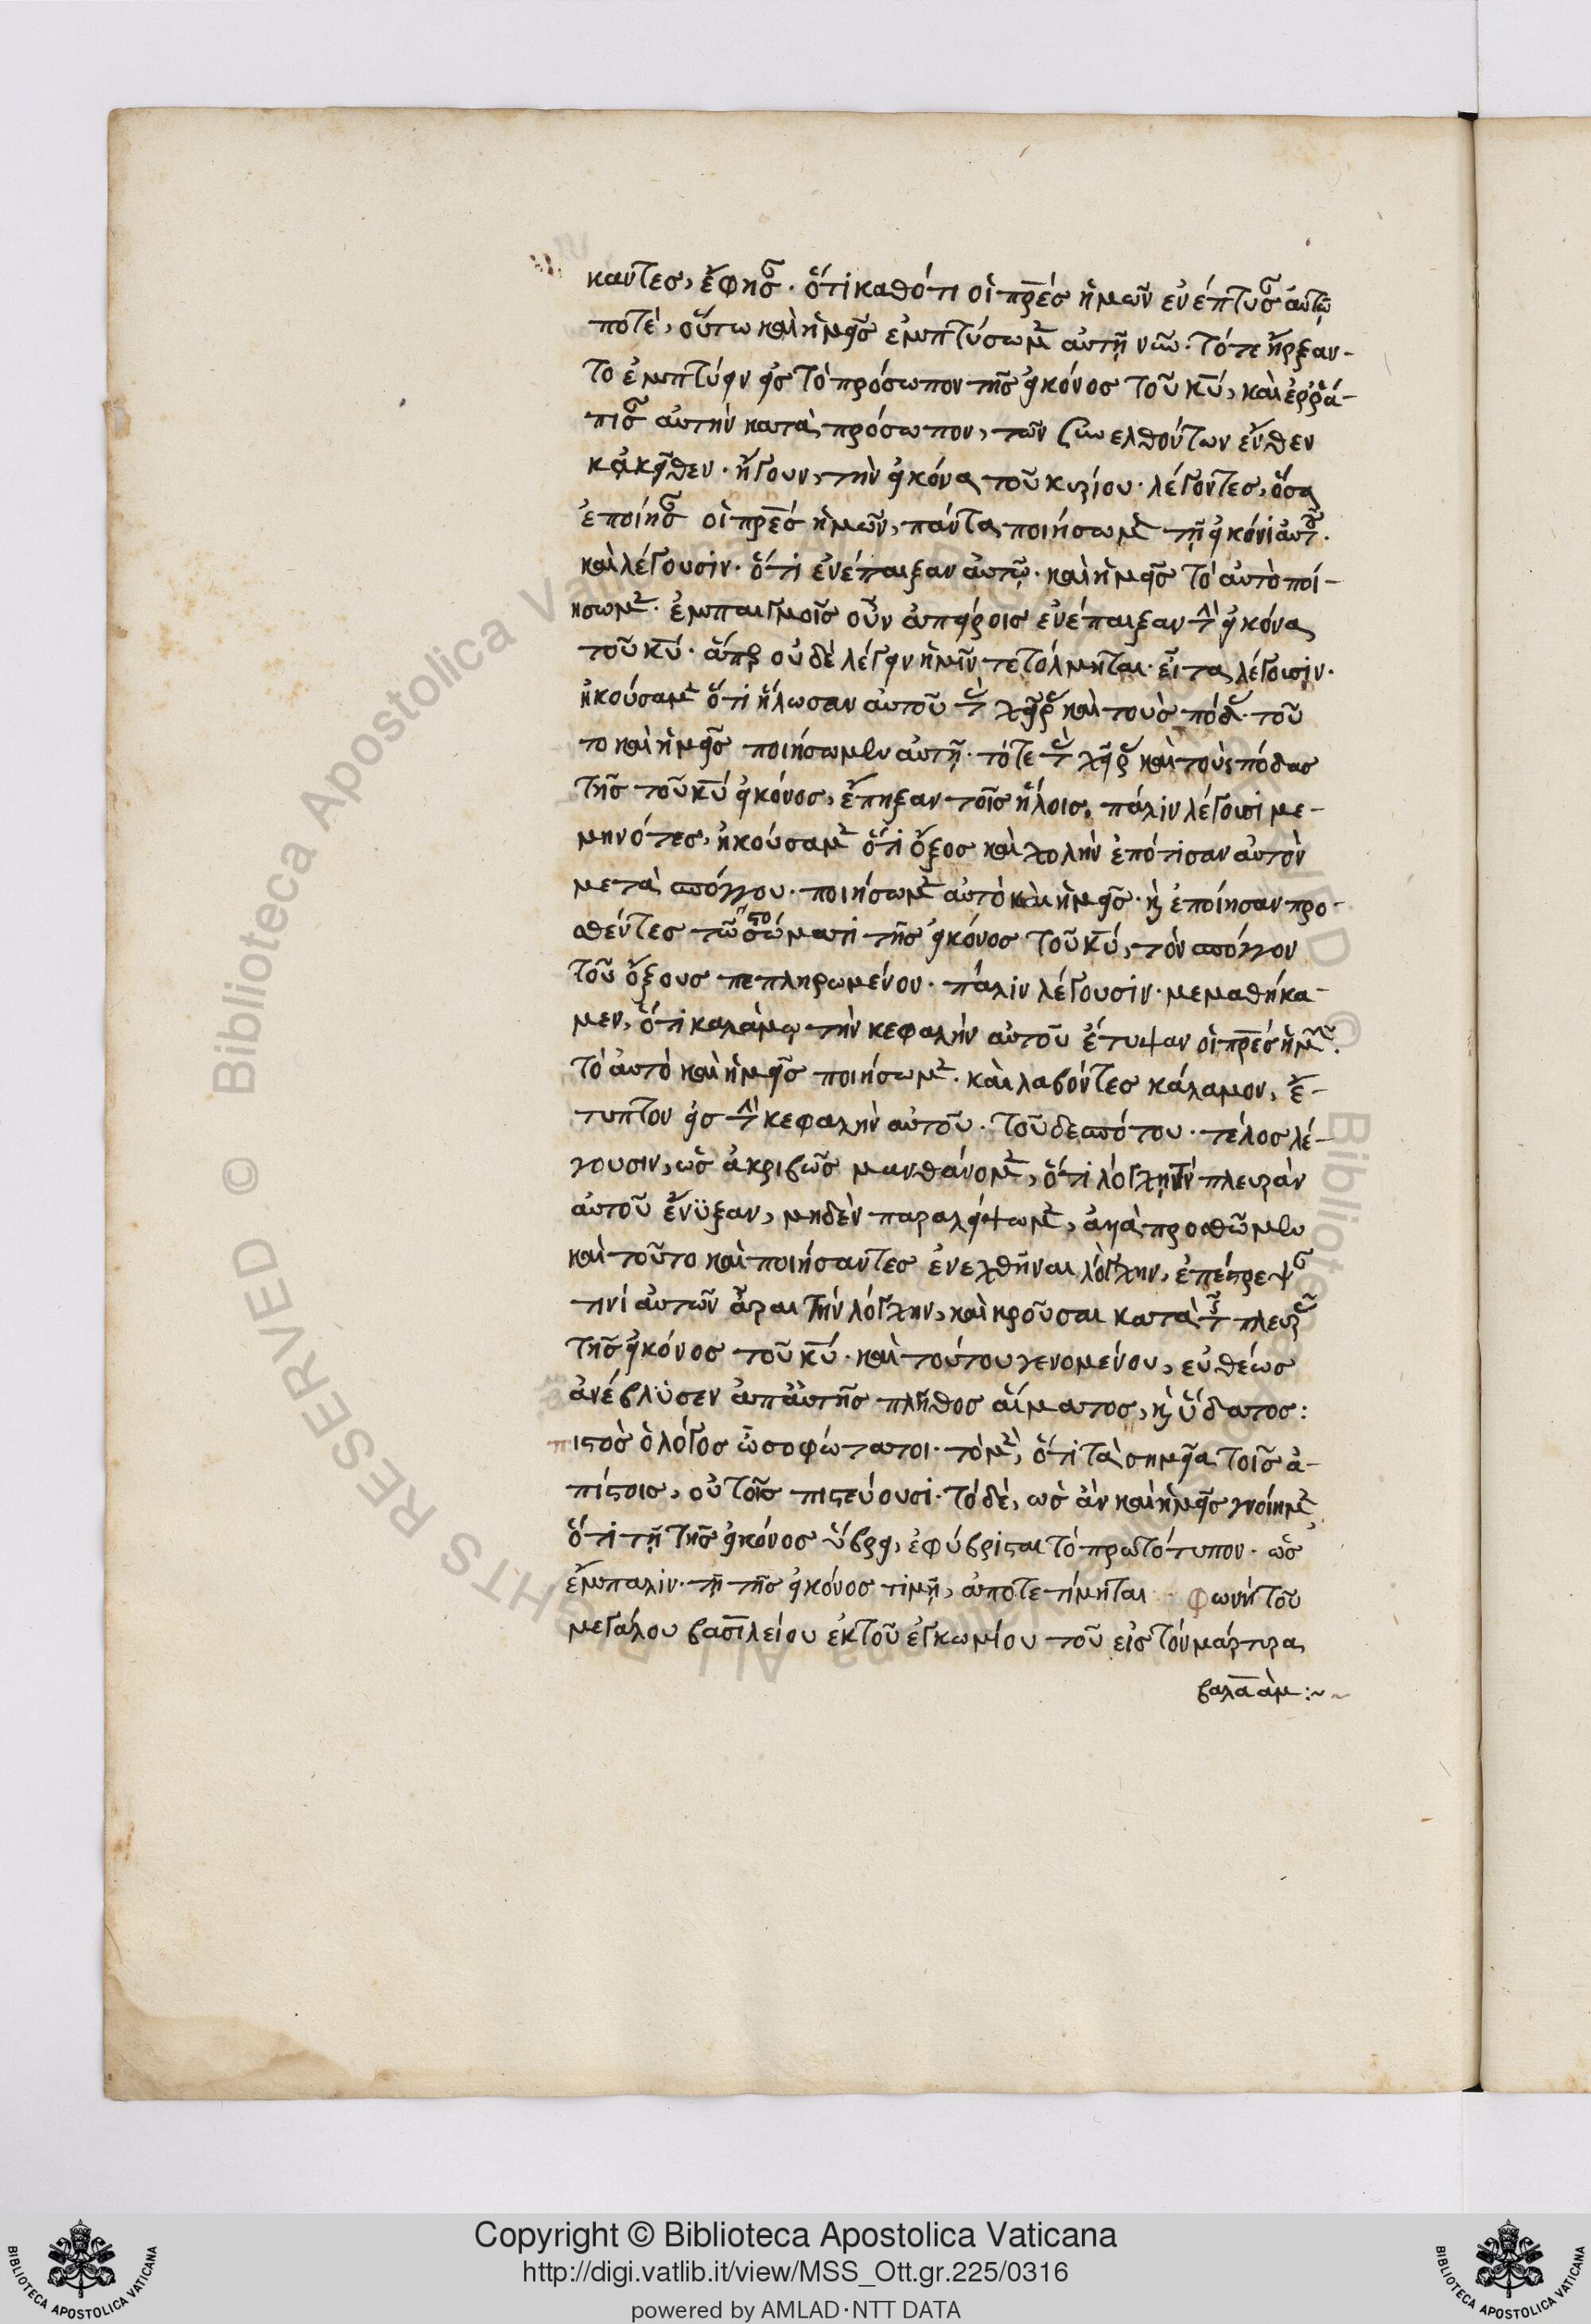 καντες, ἔφησ. ὅτι καθότι οἱ πρ̅ε̅ς ἡμῶν ἐνέπτυσ αὐτῶ
ποτέ, οὕτω καὶ ἡμεῖς ἐμπτύσωμ αὐτῇ νῦν. τότε ἤρξαν-
το ἐμπτύειν εἰς τὸ πρόσωπον τῆς εἰκόνος τοῦ κ̅υ̅, καὶ ἐρρά-
πισ αὐτὴν κατὰ πρόσωπον, τῶν συνελθόντων ἔνθεν
κἀκεῖθεν. ἤγουν, τὴν εἰκόνα τοῦ κυρίου. λέγοντες, ὅσα
ἐποίησ οἱ πρ̅ε̅ς ἡμῶν, πάντα ποιήσωμ τῇ εἰκόνι αὐτ.
καὶ λέγουσιν. ὅτι ἐνέπαιξαν αὐτῷ. καὶ ἡμεῖς τὸ αὐτὸ ποι-
ήσωμ. ἐμπαιγμοῖς οὖν ἀπείροις ἐνέπαιξαν τ εἰκόνα
τοῦ κ̅υ̅. ἅπερ οὐδὲ λέγειν ἡμῖν τετόλμηται. εἶτα λέγουσιν.
ἠκούσαμ ὅτι ἥλωσαν αὐτοῦ τ χεῖρ καὶ τοὺς πόδ. τοῦ
το καὶ ἡμεῖς ποιήσωμεν αὐτῇ. τότε τ χεῖρ καὶ τοὺς πόδας
τῆς τοῦ κ̅υ̅ εἰκόνος, ἔπηξαν τοῖς ἥλοις. πάλιν λέγουσι με-
μηνότες, ἠκούσαμ ὅτι ὄξος καὶ χολὴν ἐπότισαν αὐτὸν
μετὰ σπόγγου. ποιήσωμ αὐτὸ καὶ ἡμεῖς. κ ἐποίησαν προσ-
θέντες τῶ στόματι τῆς εἰκόνος τοῦ κ̅υ̅, τὸν σπόγγον
τοῦ ὄξους πεπληρωμένον. πάλιν λέγουσιν. μεμαθήκα-
μεν, ὅτι καλάμῳ τὴν κεφαλὴν αὐτοῦ ἔτυψαν οἱ πρ̅ε̅ς ἡμ.
τὸ αὐτὸ καὶ ἡμεῖς ποιήσωμ. καὶ λαβόντες κάλαμον, ἔ-
τυπτον εἰς τ κεφαλὴν αὐτοῦ. τοῦ δεσπότου. τέλος λέ-
γουσιν, ὡς ἀκριβῶς μανθάνομ, ὅτι λόγχῃ τὴν πλευρὰν
αὐτοῦ ἔνϋξαν, μηδὲν παραλείψωμ, ἀλλὰ προσθῶμεν
καὶ τοῦτο καὶ ποιήσαντες ἐνεχθῆναι λόγχην, ἐπέτρεψ
τινὶ αὐτῶν ἆραι τὴν λόγχην, καὶ κροῦσαι κατὰ τ πλευρ
τῆς εἰκόνος τοῦ κ̅υ̅. καὶ τούτου γενομένου, εὐθέως
ἀνέβλϋσεν ἀπ αὐτῆς πλῆθος αἵματος, κ ὕδατος:
πιστὸς ὁ λόγος ὦ σοφώτατοι. τὸ μ, ὅτι τὰ σημεῖα τοῖς ἀ-
πίστοις, οὐ τοῖς πιστεύουσι. τὸ δὲ, ὡς ἂν καὶ ἡμεῖς γνοίημ
ὅτι τῇ τῆς εἰκόνος ὕβρει, ἐφύβρισται τὸ πρωτότυπον. ὡς
ἔμπαλιν. τῇ τῆς εἰκόνος τιμῇ, ἀποτετίμηται φωνὴ τοῦ
μεγάλου βασιλείου ἐκ τοῦ ἐγκωμίου τοῦ εἰς τὸν μάρτυρα
βαλαὰμ :~
Copyright © Biblioteca Apostolica Vaticana
http://digi.vatlib.it/view/MSS_Ott.gr.225/0316
powered by AMLAD·NTT DATA